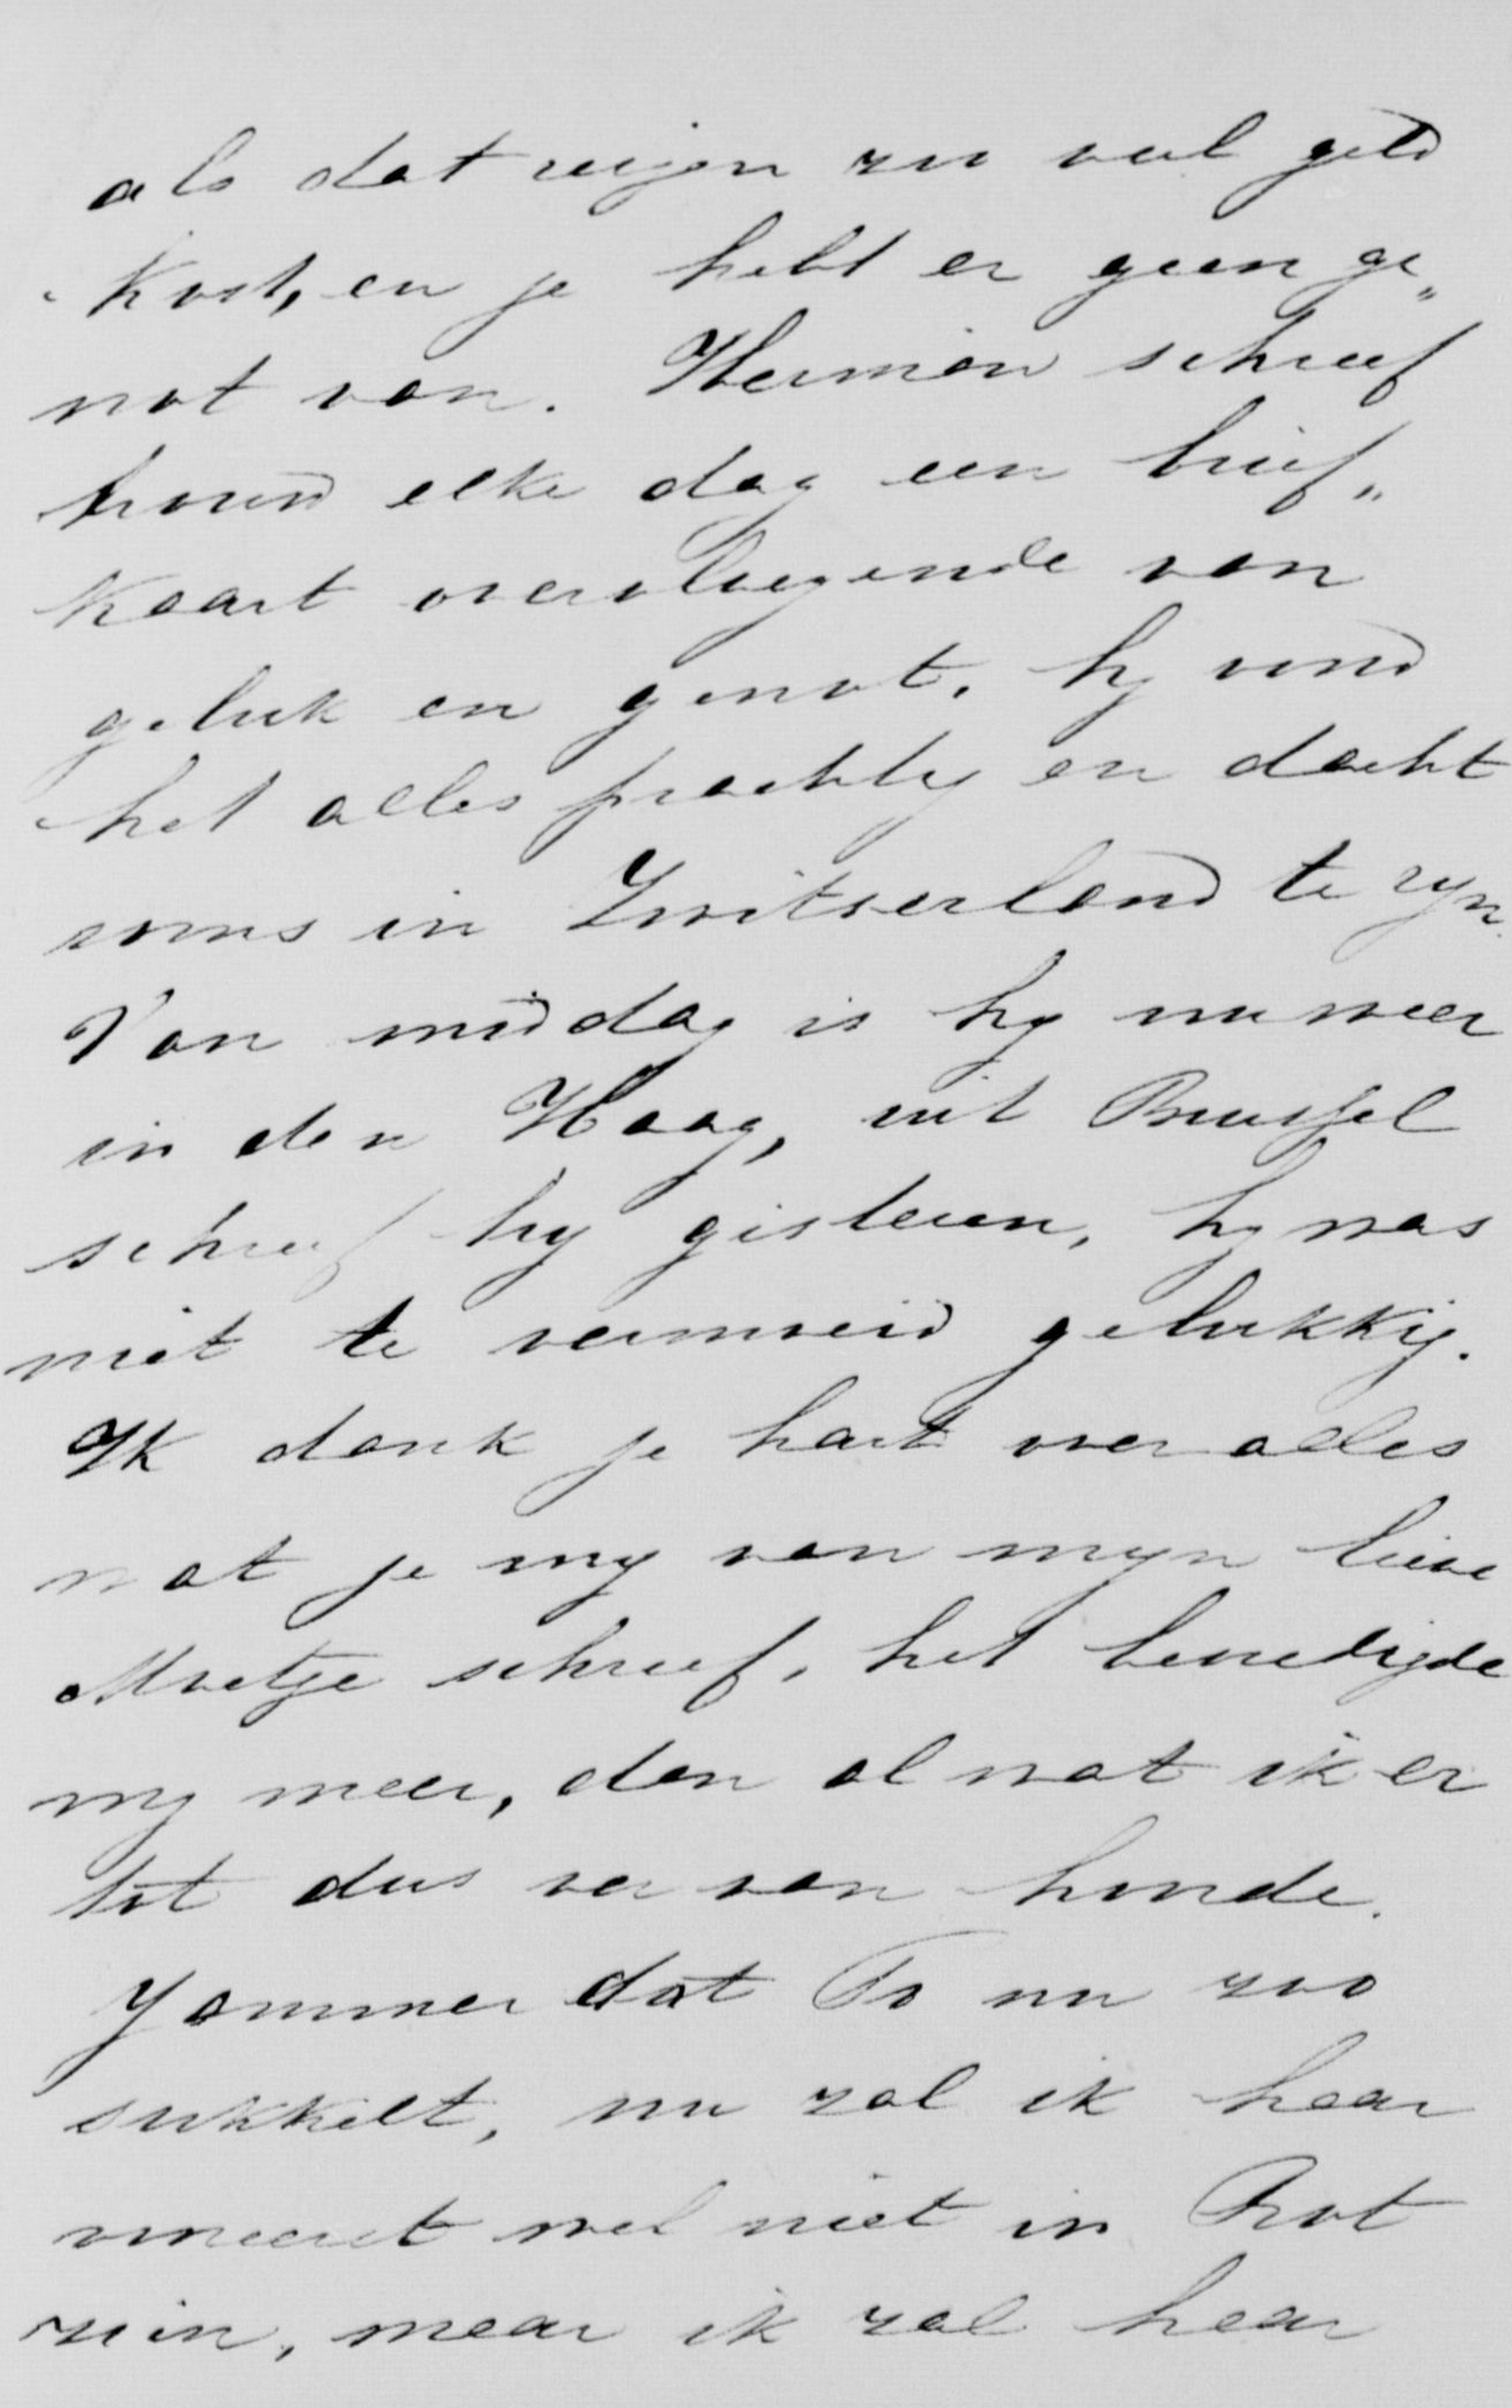 als dat reizen zoo veel geld
kost, en je hebt er geen ge„
not van. Herman schreef
haast elke dag een brief„
kaart overvloeyende van
geluk en genot. hy vond
het alles prachtig en dacht
soms in Zwitserland te zyn.
Van middag is hy nu weer
in den Haag, uit Brussel
schreef hy gisteren, hy was
niet te vermoeid gelukkig.
Ik dank je hart voor alles
wat je my van myn lieve
Moetje schreef, het bevredigde
my meer, dan al wat ik er
tot dus ver van hoorde.
Jammer dat To nu zoo
sukkelt, nu zal ik haar
vooreerst wel niet in Rot
zien, maar ik zal haar